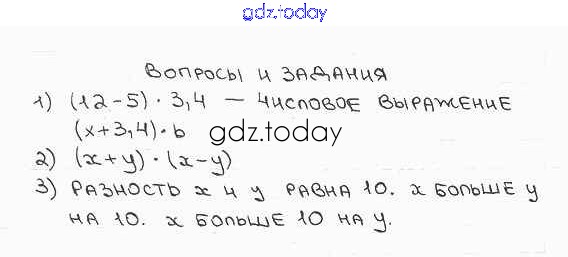 gdz.today
ВОПРОСЫ И ЗАДАНИЯ
1) (12-5) · 3,4 — ЧИСЛОВОЕ ВЫРАЖЕНИЕ
(x+3,4) · b
gdz.today
2) (x+y) · (x-y)
3) РАЗНОСТЬ x И y РАВНА 10. x БОЛЬШЕ y
НА 10. x БОЛЬШЕ 10 НА y.